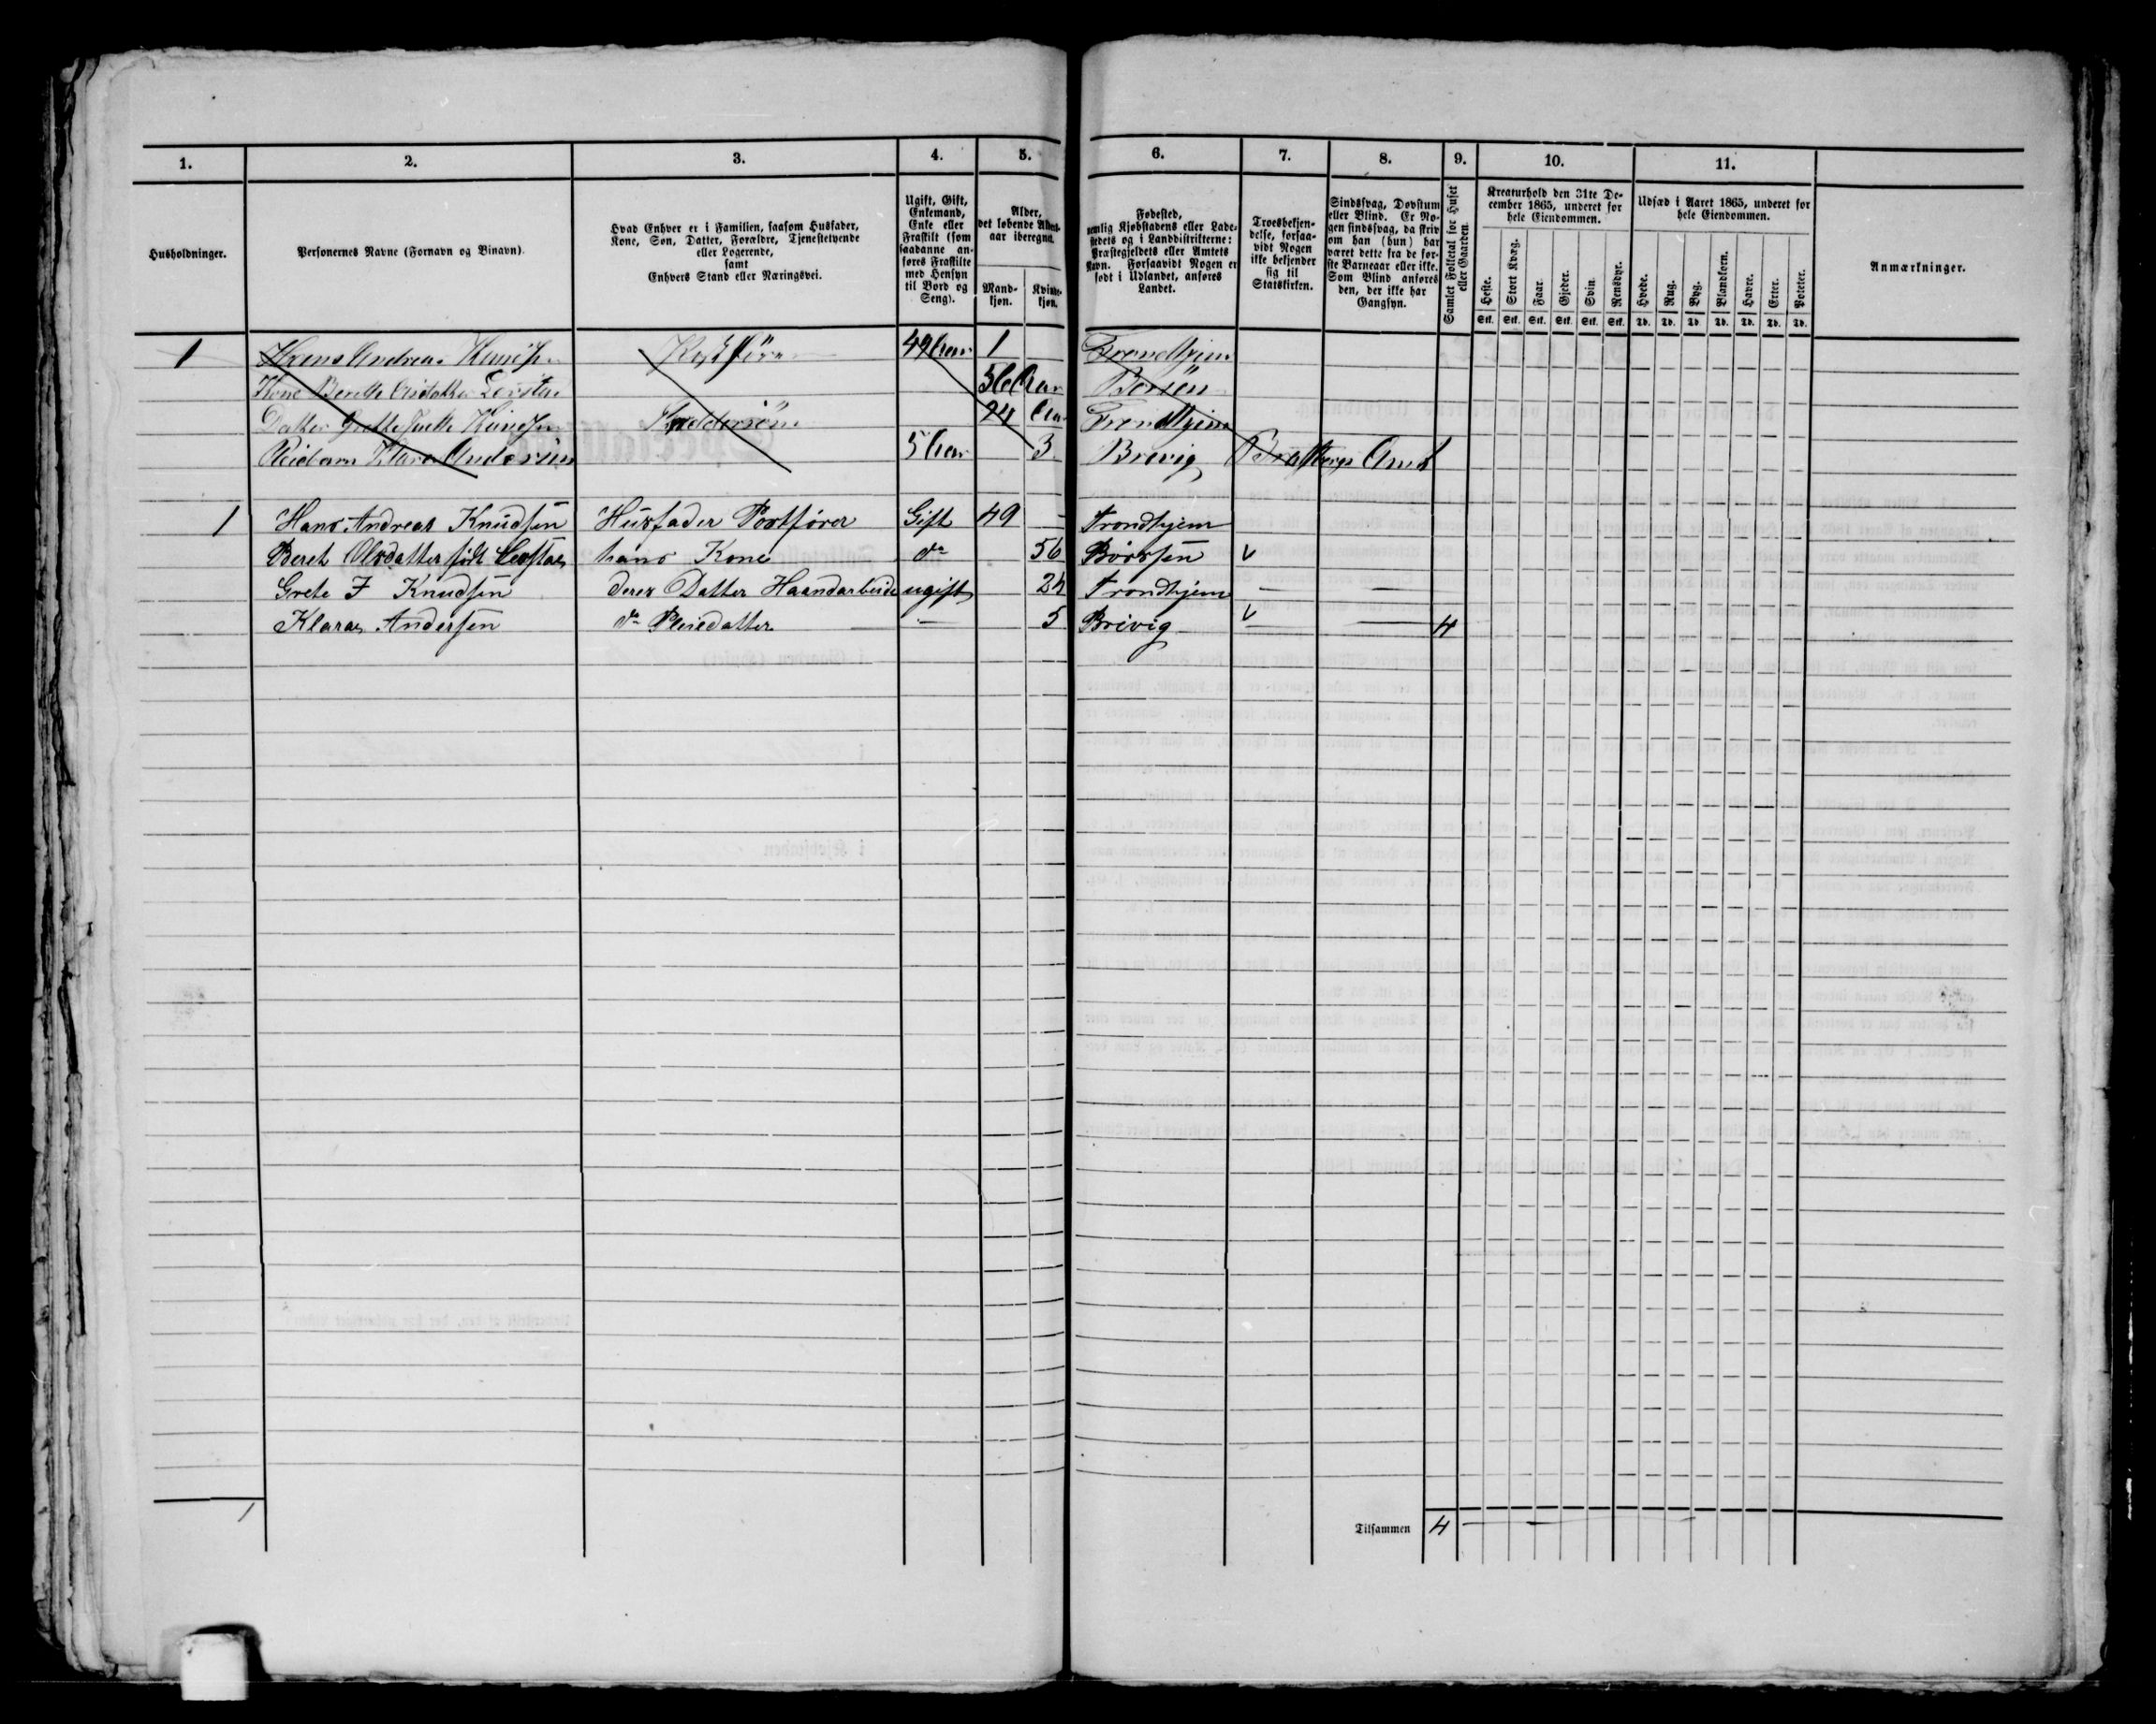 1. 2. 3. 4. 5. 6. 7. 8. 9. 10. 11.
Husholdninger.
Personernes Navne (Fornavn og Binavn).
Hvad Enhver er i Familien, saasom Husfader,
Kone, Søn, Datter, Forældre, Tjenestetyende
eller Logerende,
samt
Enhvers Stand eller Næringsvei.
Ugift, Gift,
Enkemand,
Enke eller
Fraskilt (som
saadanne an-
føres Fraskilte
med Hensyn
til Bord og
Seng).
Alder,
det løbende Alders-
aar iberegnet.
Mand-
kjøn.
Kvinde-
kjøn.
Fødested,
nemlig Kjøbstadens eller Lade-
stedets og i Landdistrikterne:
Præstegjeldets eller Amtets
Navn. Forsaavidt Nogen er
født i Udlandet, anføres
Landet.
Troesbekjen-
delse, forsaa-
vidt Nogen
ikke bekjender
sig til
Statskirken.
Sindssvag, Døvstum
eller Blind. Er No-
gen sindssvag, da skriv
om han (hun) har
været dette fra de før-
ste Barneaar eller ikke.
Som Blind anføres
den, der ikke har
Gangsyn.
Samlet Folketal for Huset
eller Gaarden.
Kreaturhold den 31te De-
cember 1865, underet for
hele Eiendommen.
Heste. Stort Kvæg. Faar. Gjeder. Svin. Rensdyr.
Stk. Stk. Stk. Stk. Stk. Stk.
Udsæd i Aaret 1865, underet for
hele Eiendommen.
Hvede. Rug. Byg. Blandkorn. Havre. Erter. Poteter.
Td. Td. Td. Td. Td. Td. Td.
Anmærkninger.
1 Hans Andreas 49 Aar 1 Trondhjem
Kone Berethe 56 Aar Børsen
Datter Grethe 24 Aar Trondhjem
Pleiebarn Klara Andersen 5 Aar 3 Brevig Bratsbergs Amt
1 Hans Andreas Knudsen Husfader Postfører Gift 49 - Trondhjem
Beret Olsdatter født Levstas hans Kone do 56 Børssen v
Grete J Knudsen deres Datter Haandarbeide ugift 24 Trondhjem - -
Klara Andersen do Pleiedatter - 5 Brevig v - 4
1
Tilsammen 4